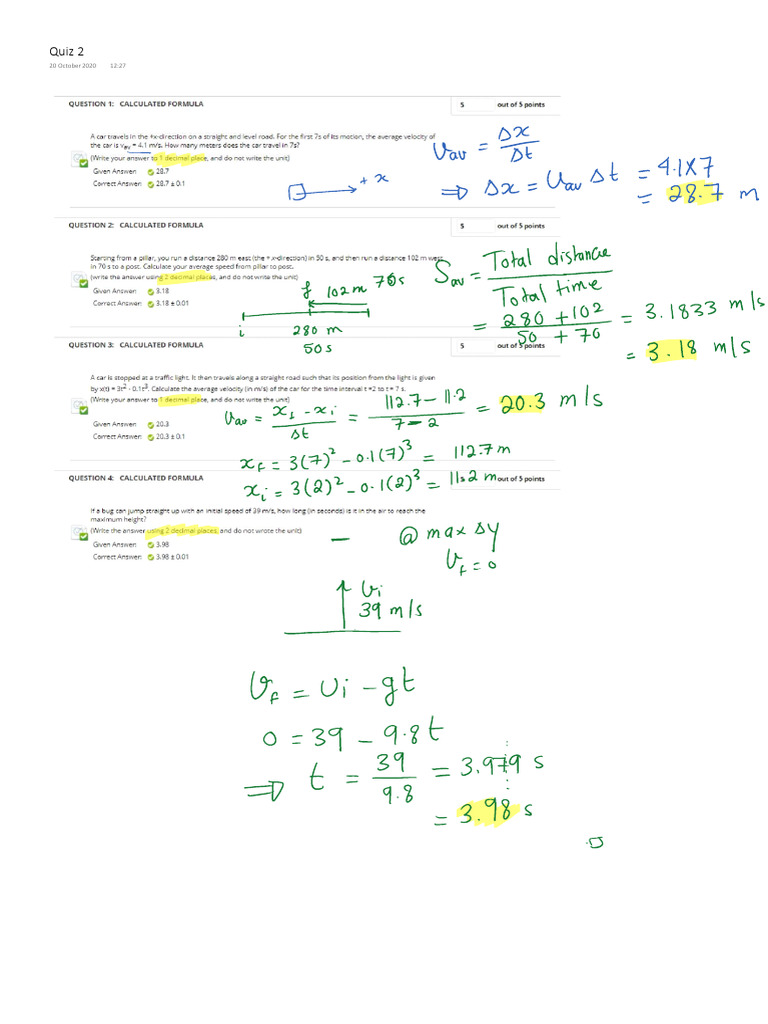 Quiz 2
20 October 2020 12:27
QUESTION 1: CALCULATED FORMULA
5 out of 5 points
A car travels in the +x-direction on a straight and level road. For the first 7s of its motion, the average velocity of
the car is vav = 4.1 m/s. How many meters does the car travel in 7s?
(Write your answer to 1 decimal place, and do not write the unit)
Given Answer: 28.7
Correct Answer: 28.7 ± 0.1
+ x
Vav = Δx/Δt
⇒ Δx = Vav Δt = 4.1X7
= 28.7 m
QUESTION 2: CALCULATED FORMULA
5 out of 5 points
Starting from a pillar, you run a distance 280 m east (the +x-direction) in 50 s, and then run a distance 102 m west
in 70 s to a post. Calculate your average speed from pillar to post.
(write the answer using 2 decimal places, and do not write the unit)
Given Answer: 3.18
Correct Answer: 3.18 ± 0.01
f 102 m 70s
i 280 m
50 s
Sav = Total distance / Total time
= 280 + 102 / 50 + 70 = 3.1833 m/s
= 3.18 m/s
QUESTION 3: CALCULATED FORMULA
5 out of 5 points
A car is stopped at a traffic light. It then travels along a straight road such that its position from the light is given
by x(t) = 3t² - 0.1t³. Calculate the average velocity (in m/s) of the car for the time interval t =2 to t = 7 s.
(Write your answer to 1 decimal place, and do not write the unit)
Given Answer: 20.3
Correct Answer: 20.3 ± 0.1
Vav = xf - xi / Δt = 112.7 - 11.2 / 7 - 2 = 20.3 m/s
xf = 3(7)² - 0.1(7)³ = 112.7 m
xi = 3(2)² - 0.1(2)³ = 11.2 m
QUESTION 4: CALCULATED FORMULA
out of 5 points
If a bug can jump straight up with an initial speed of 39 m/s, how long (in seconds) is it in the air to reach the
maximum height?
(Write the answer using 2 decimal places, and do not wrote the unit)
Given Answer: 3.98
Correct Answer: 3.98 ± 0.01
@ max Δy
Vf = 0
Vi
39 m/s
Vf = Vi - gt
0 = 39 - 9.8t
⇒ t = 39/9.8 = 3.979 s
= 3.98 s